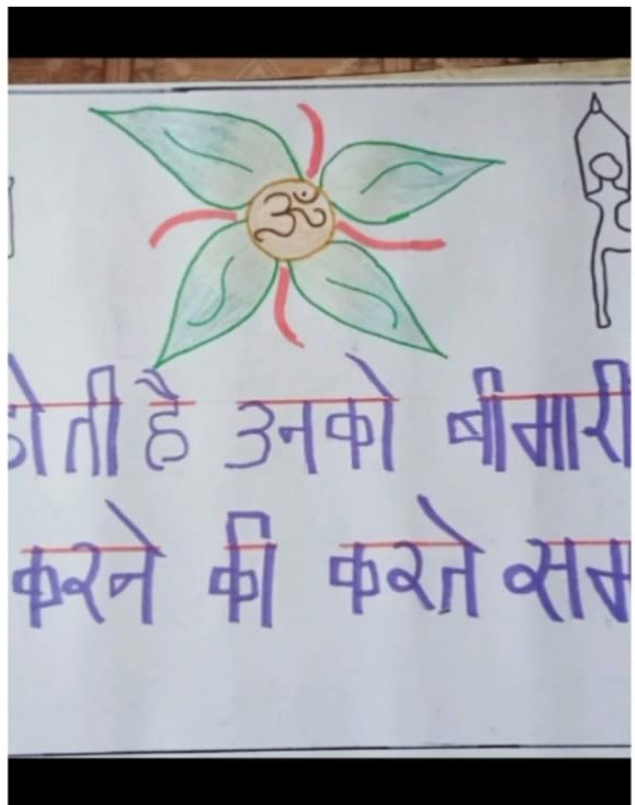 ॐ
होती है उनको बीमारी
करने की करते सम